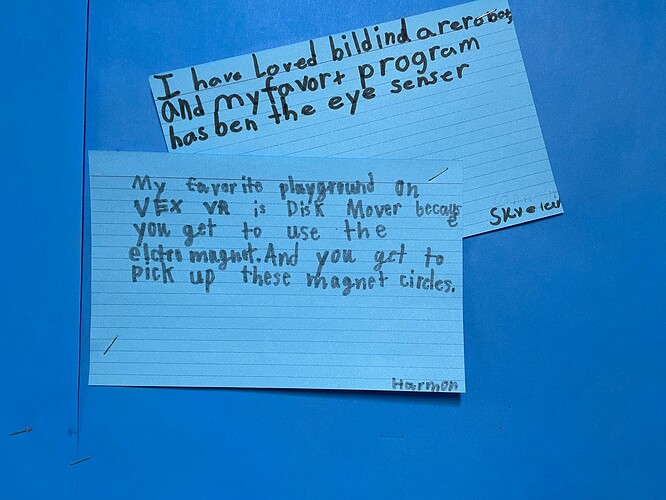 I have Loved bildind arerobots
and my favort program
has ben the eye senser
My favorite playground on
VEX VR is Disk Mover because
you get to use the
elctro magnet. And you get to
pick up these magnet circles.
Harmon